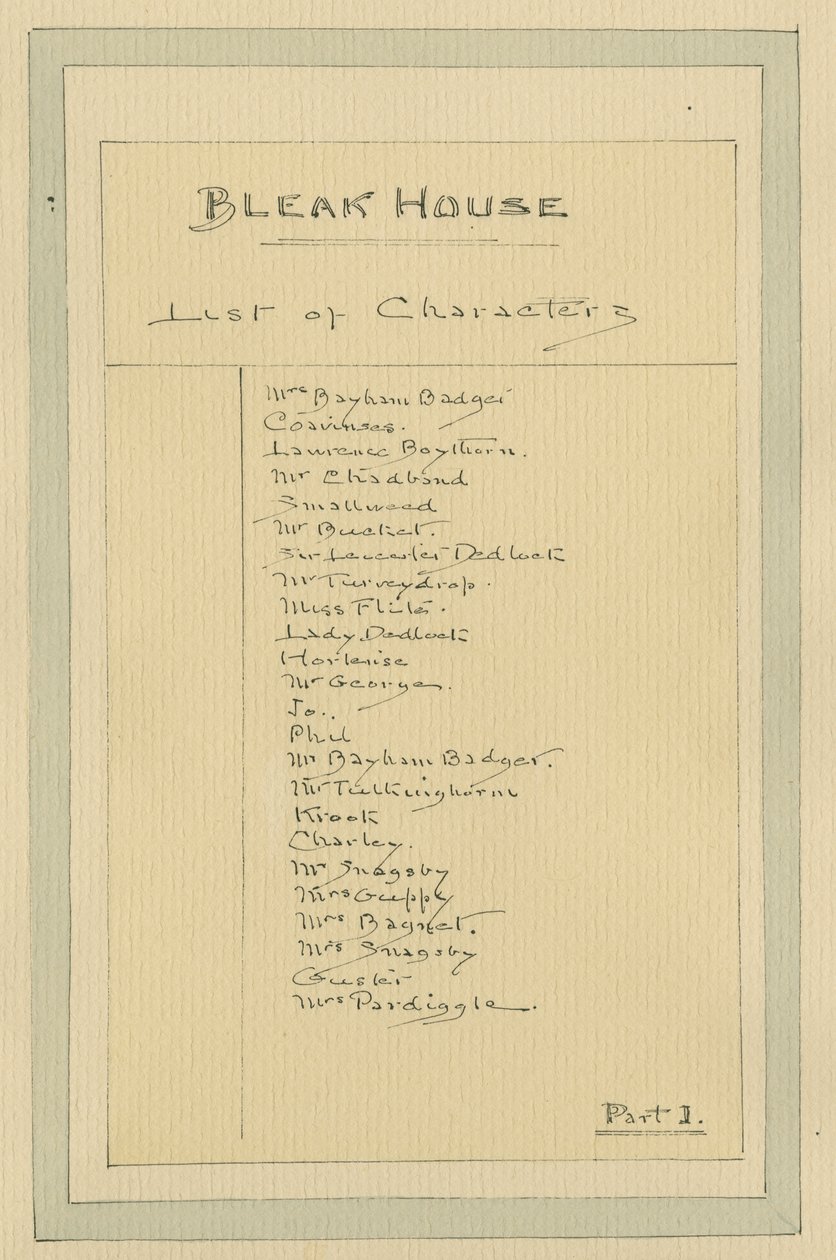 BLEAK HOUSE
List of Characters
Mrs Bayham Badger
Coavinses.
Lawrence Boythorn.
Mr Chadband
Smallweed
Mr Bucket.
Sir Leicester Dedlock
Mr Turveydrop.
Miss Flite.
Lady Dedlock
Hortense
Mr George.
Jo..
Phil
Mr Bayham Badger.
Mr Tulkinghorn
Krook
Charley.
Mr Snagsby
Mrs Guppy
Mrs Bagnet.
Mrs Snagsby
Guster
Mrs Pardiggle.
Part I.